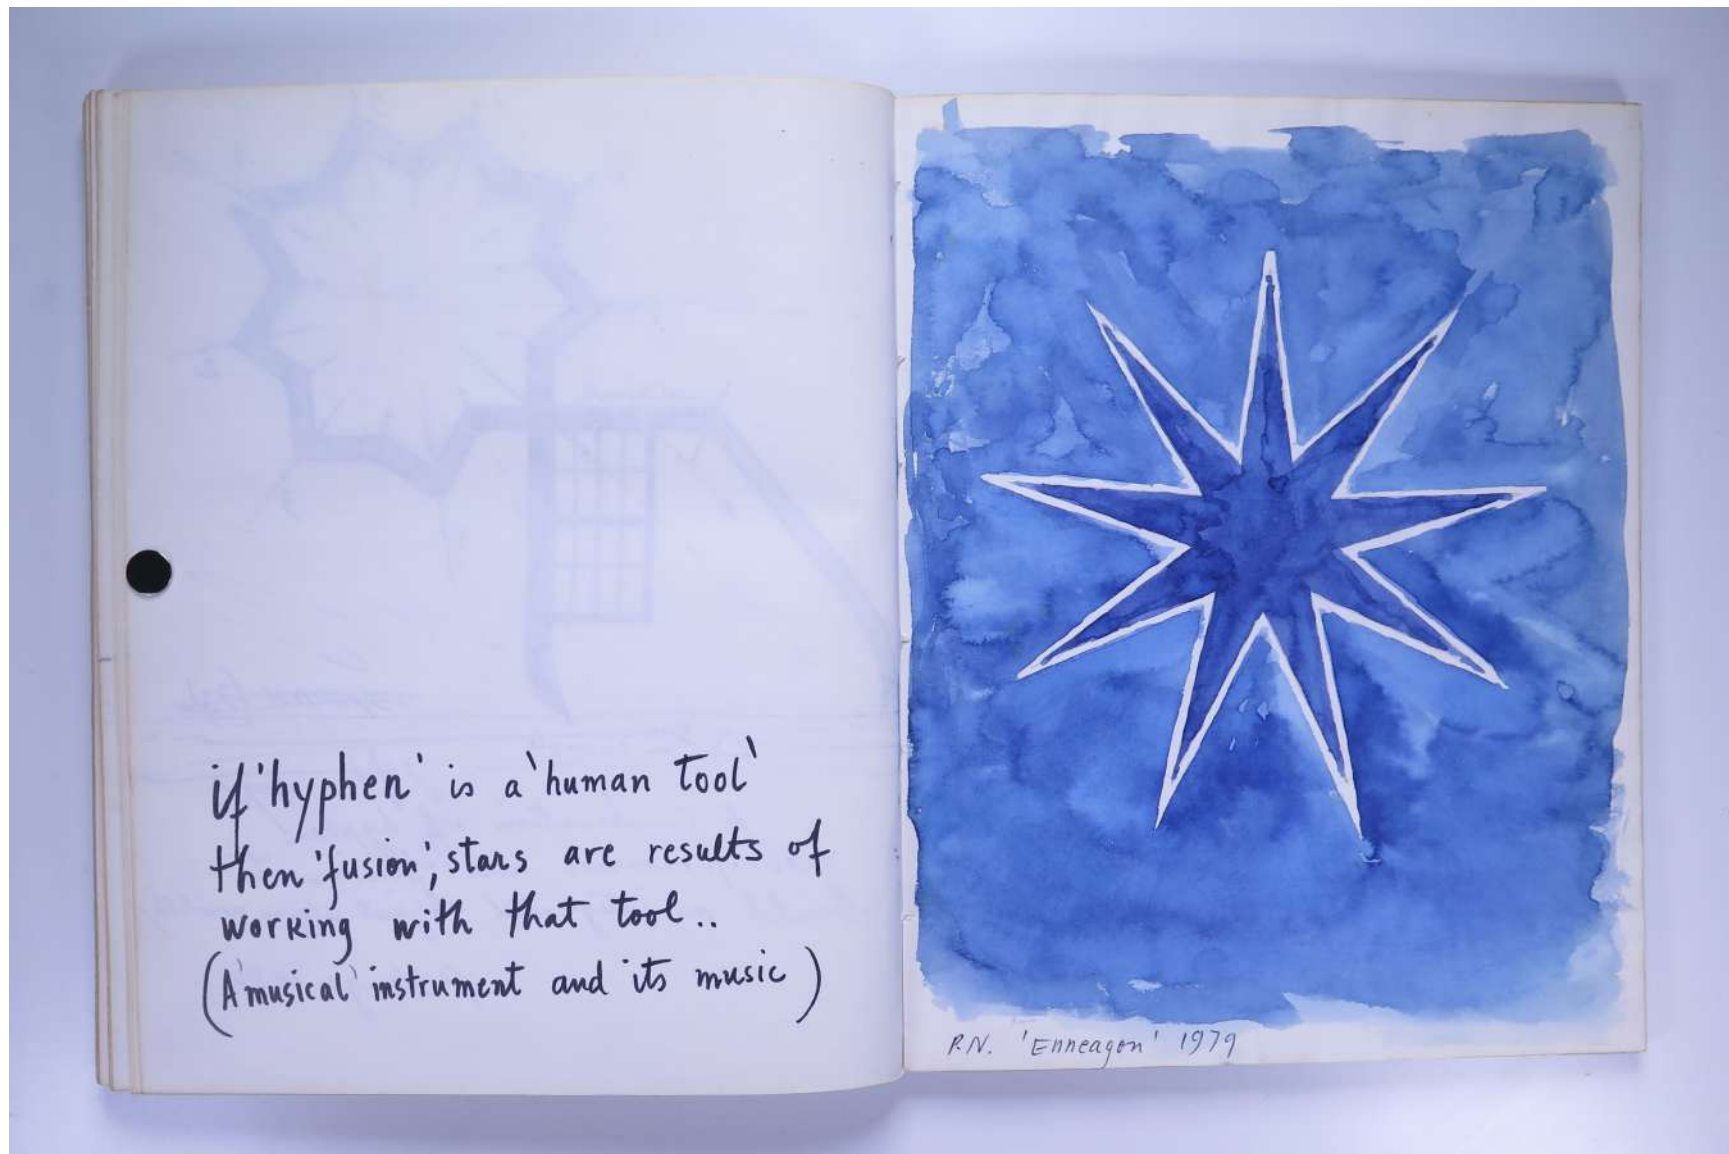 if 'hyphen' is a 'human tool'
then 'fusion', stars are results of
working with that tool..
(A 'musical' instrument and its music)
P.N. 'Enneagon' 1979